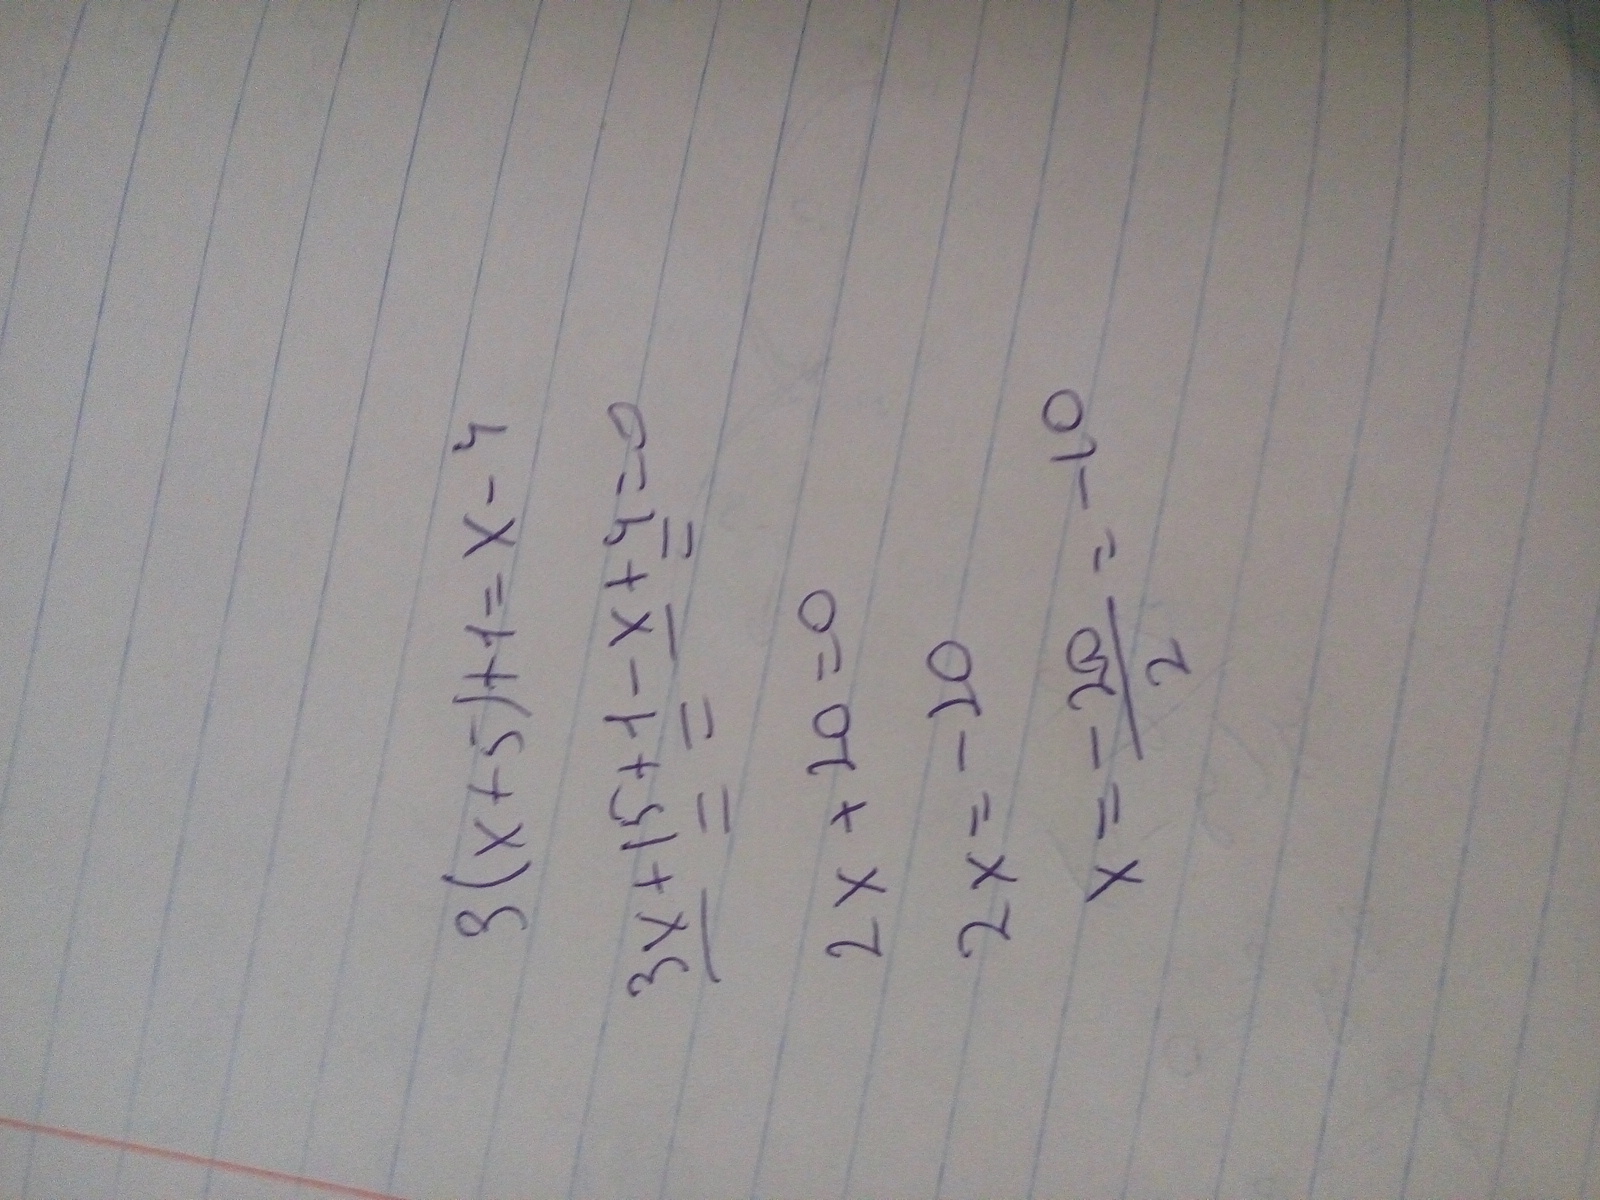 3(x+5)+1=x-4
3x+15+1-x+4=0
2x+20=0
2x=-20
x=-20/2=-10